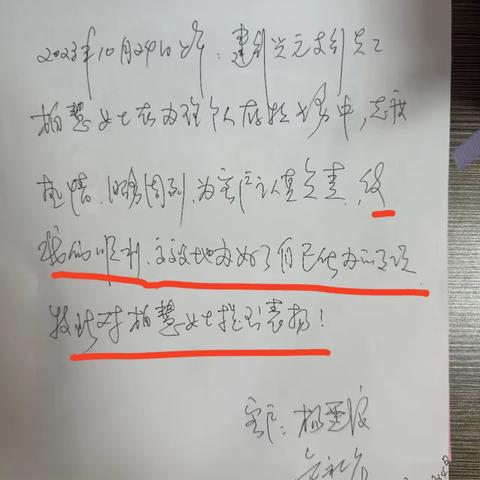 2023年10月24日上午，建行兴元支行员工
柏慧女士在办理个人存款业务中，态度
热情、服务周到，为客户认真负责，使
我们顺利、主动地办好了自己所办的事项
特此对柏慧女士提出表扬！
客户：杨